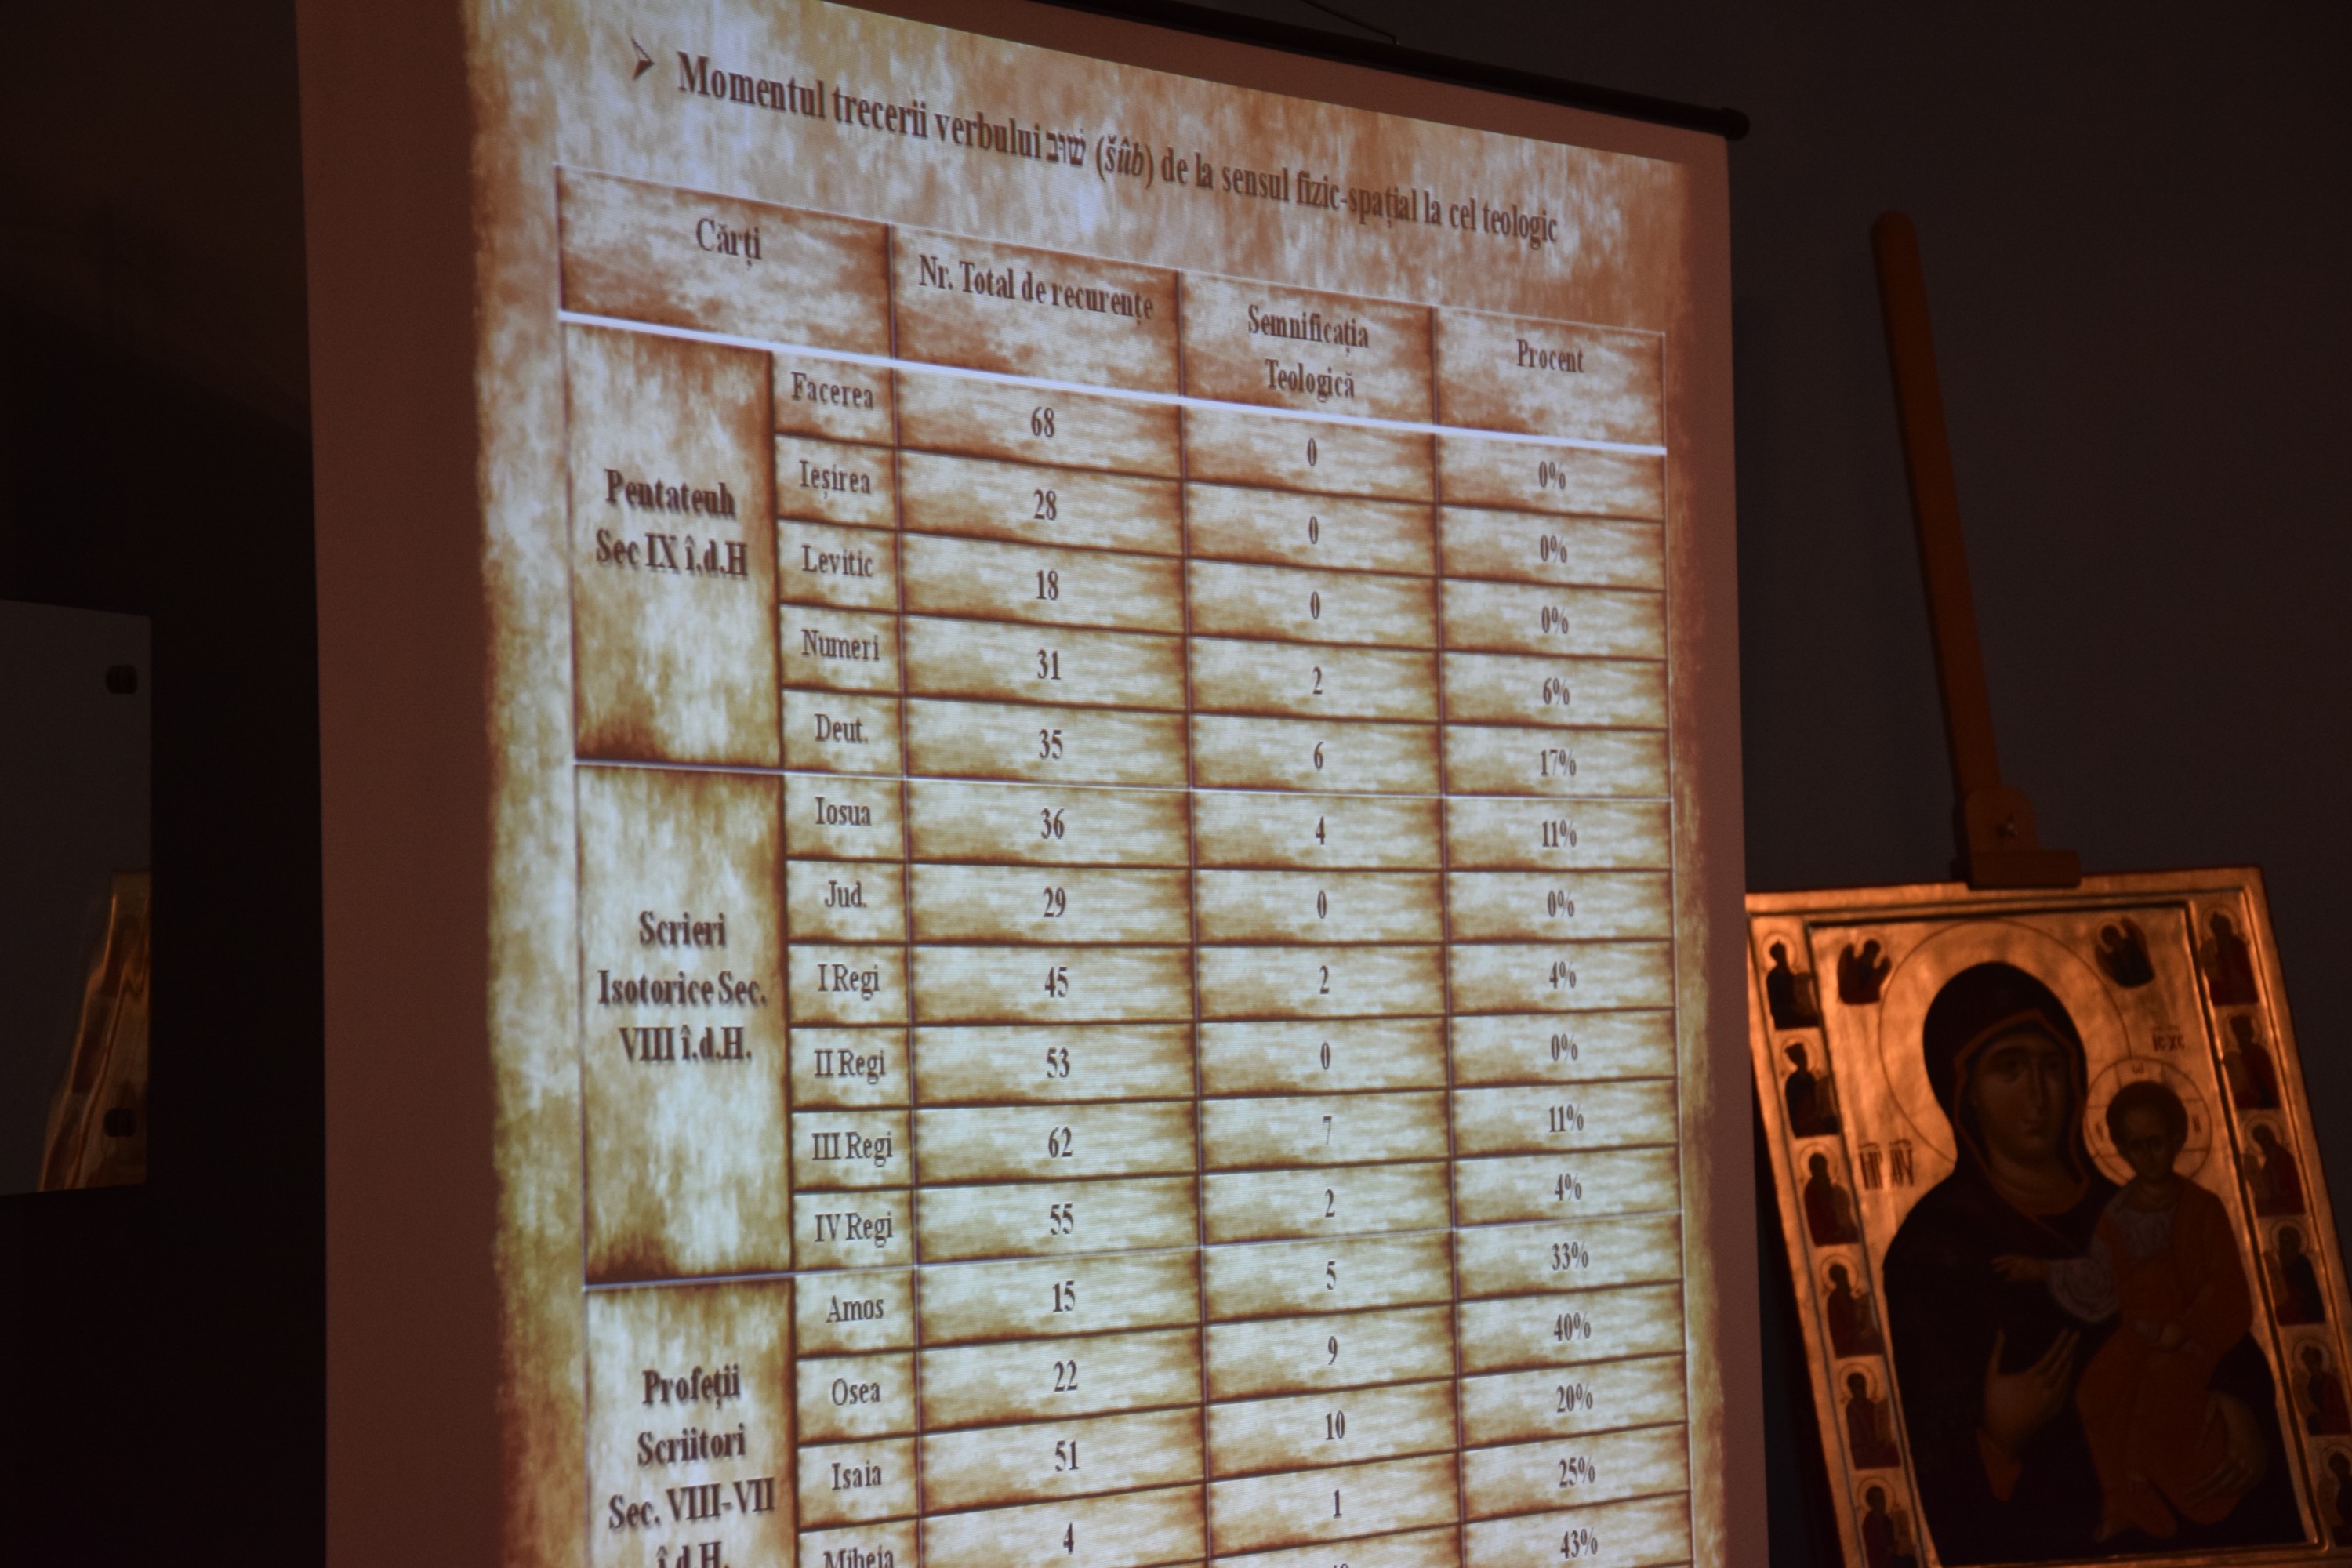 ➤ Momentul trecerii verbului שׁוּב (šûb) de la sensul fizic-spațial la cel teologic
Cărți
Nr. Total de recurențe
Semnificația
Teologică
Procent
Pentateuh
Sec IX î.d.H
Facerea 68 0 0%
Ieșirea 28 0 0%
Levitic 18 0 0%
Numeri 31 2 6%
Deut. 35 6 17%
Scrieri
Isotorice Sec.
VIII î.d.H.
Iosua 36 4 11%
Jud. 29 0 0%
I Regi 45 2 4%
II Regi 53 0 0%
III Regi 62 7 11%
IV Regi 55 2 4%
Profeții
Scriitori
Sec. VIII-VII
î.d.H.
Amos 15 5 33%
Osea 22 9 40%
Isaia 51 10 20%
Miheia 4 1 25%
43%
IC XC